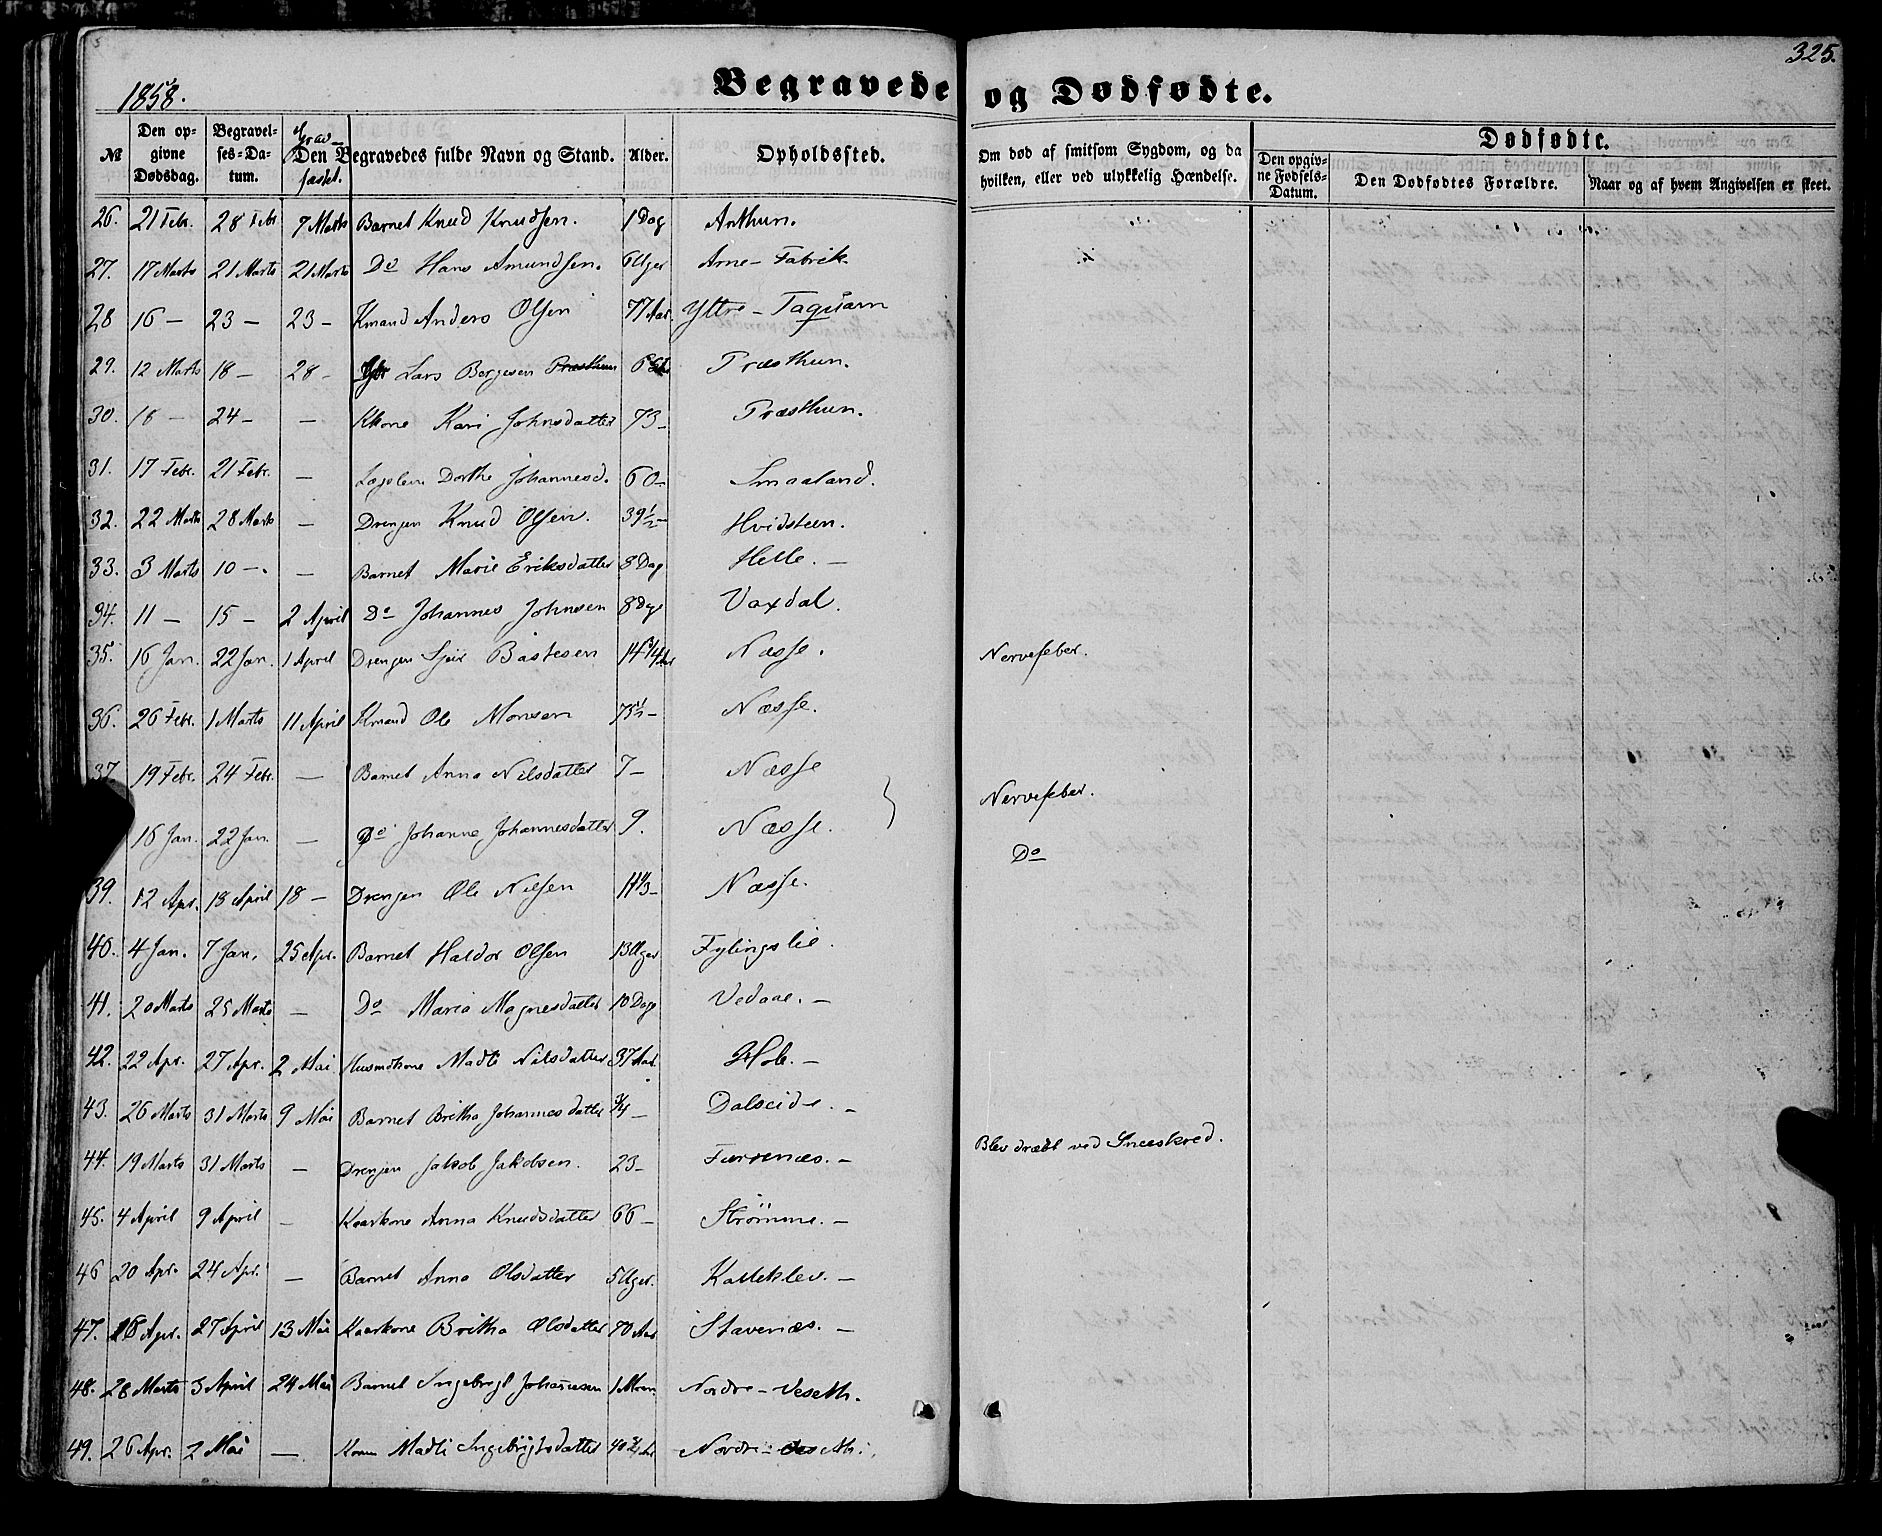 325.
1858.
Begravede og Dødfødte.
№ Den opgivne Dødsdag. Begravelses-Datum. Grav- fæstet. Den Begravedes fulde Navn og Stand. Alder. Opholdssted. Om død af smitsom Sygdom, og da hvilken, eller ved ulykkelig Hændelse. Dødfødte.
Den opgivne Fødsels-Datum. Den Dødfødtes Forældre. Naar og af hvem Angivelsen er skeet.
26. 21 Febr. 28 Febr 7 Marts Barnet Knud Knudsen. 1 Dag Arthun.
27. 17 Marts 21 Marts 21 Marts Do Hans Amundsen. 6 Uger Arne-Fabrik
28 16 – 23 – 23 – Kmand Anders Olsen 77 Aar Yttre –
29. 12 Marts 18 – 28 – Lars Børgesen Præsthun Præsthun.
30. 18 – 24 – – Kkone Kari Johnsdatter 73 – Præsthun.
31. 17 Febr. 21 Febr. – Dorthe Johannesd. 60 – Smaaland.
32. 22 Marts 28 Marts – Drengen Knud Olsen. 39½ – Hvidsteen.
33. 3 Marts 10 – – Barnet Marie Eriksdatter 8 Dag Helle. –
34. 11 – 15 – 2 April Do Johannes Johnsen 8 Dge Vaxdal.
35. 16 Jan. 22 Jan. 1 April Drengen Bastesen 14¾ Aar Næsse. Nervefeber.
36. 26 Febr. 1 Marts 11 April Kmand Ole Monsen 75½ – Næsse.
37 19 Febr. 24 Febr. – Barnet Anna Nilsdatter 7 – Næsse Nervefeber.
16 Jan. 22 Jan. – Do Johanna Johannesdatter 9. Næsse. Do
39. 12 Apr. 18 April 18 – Drengen Ole Nilsen Næsse.
40. 4 Jan. 7 Jan. 25 Apr. Barnet Haldor Olsen 13 Uger Fylingslie.
41. 20 Marts 25 Marts – Do Maria Magnesdatter 10 Dage Vedaae. –
42. 22 Apr. 27 Apr. 2 Mai Husmdkone Madli Nilsdatter 37 Aar Hole. –
43. 26 Marts 31 Marts 9 Mai Barnet Britha Johannesdatter ¾ – Dalseide. –
44. 19 Marts 31 Marts – Drengen Jakob Jakobsen. 23 – Furrenæs. – Blev dræbt ved Sneeskred.
45. 4 April 9 April – Kaarkone Anna Knudsdatter 66 – Strömme. –
46 20 Apr. 24 Apr. – Barnet Anna Olsdatter 5 Uger. Kalleklev. –
47. 18 Apr. 27 April 13 Mai Kaarkone Britha Olsdatter 70 Aar Stavenæs. –
48. 28 Marts 3 April 24 Mai Barnet Ingebrigt Johannesen 1 Nordre – Veseth.
49. 26 Apr. 2 Mai – Konen Madli Ingebrigtsdatter Nordre –